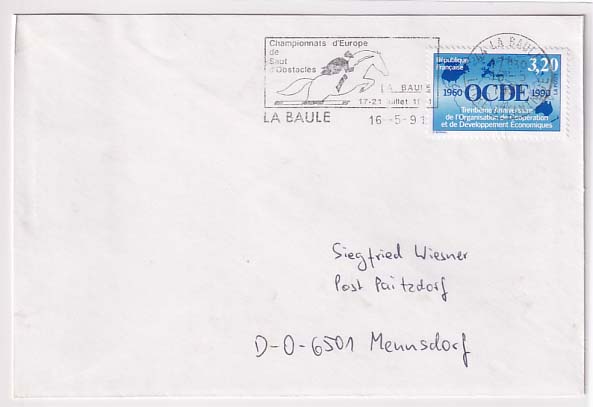 Championnats d'Europe
de
Saut
d'Obstacles
LA BAULE
17-21 juillet
LA BAULE 16-5-91
LA BAULE
République
Française
3,20
1960 OCDE 1990
Trentième Anniversaire
de l'Organisation de Coopération
et de Développement Économiques
Siegfried Wiesner
Post Paitzdorf
D-O-6501 Mennsdorf